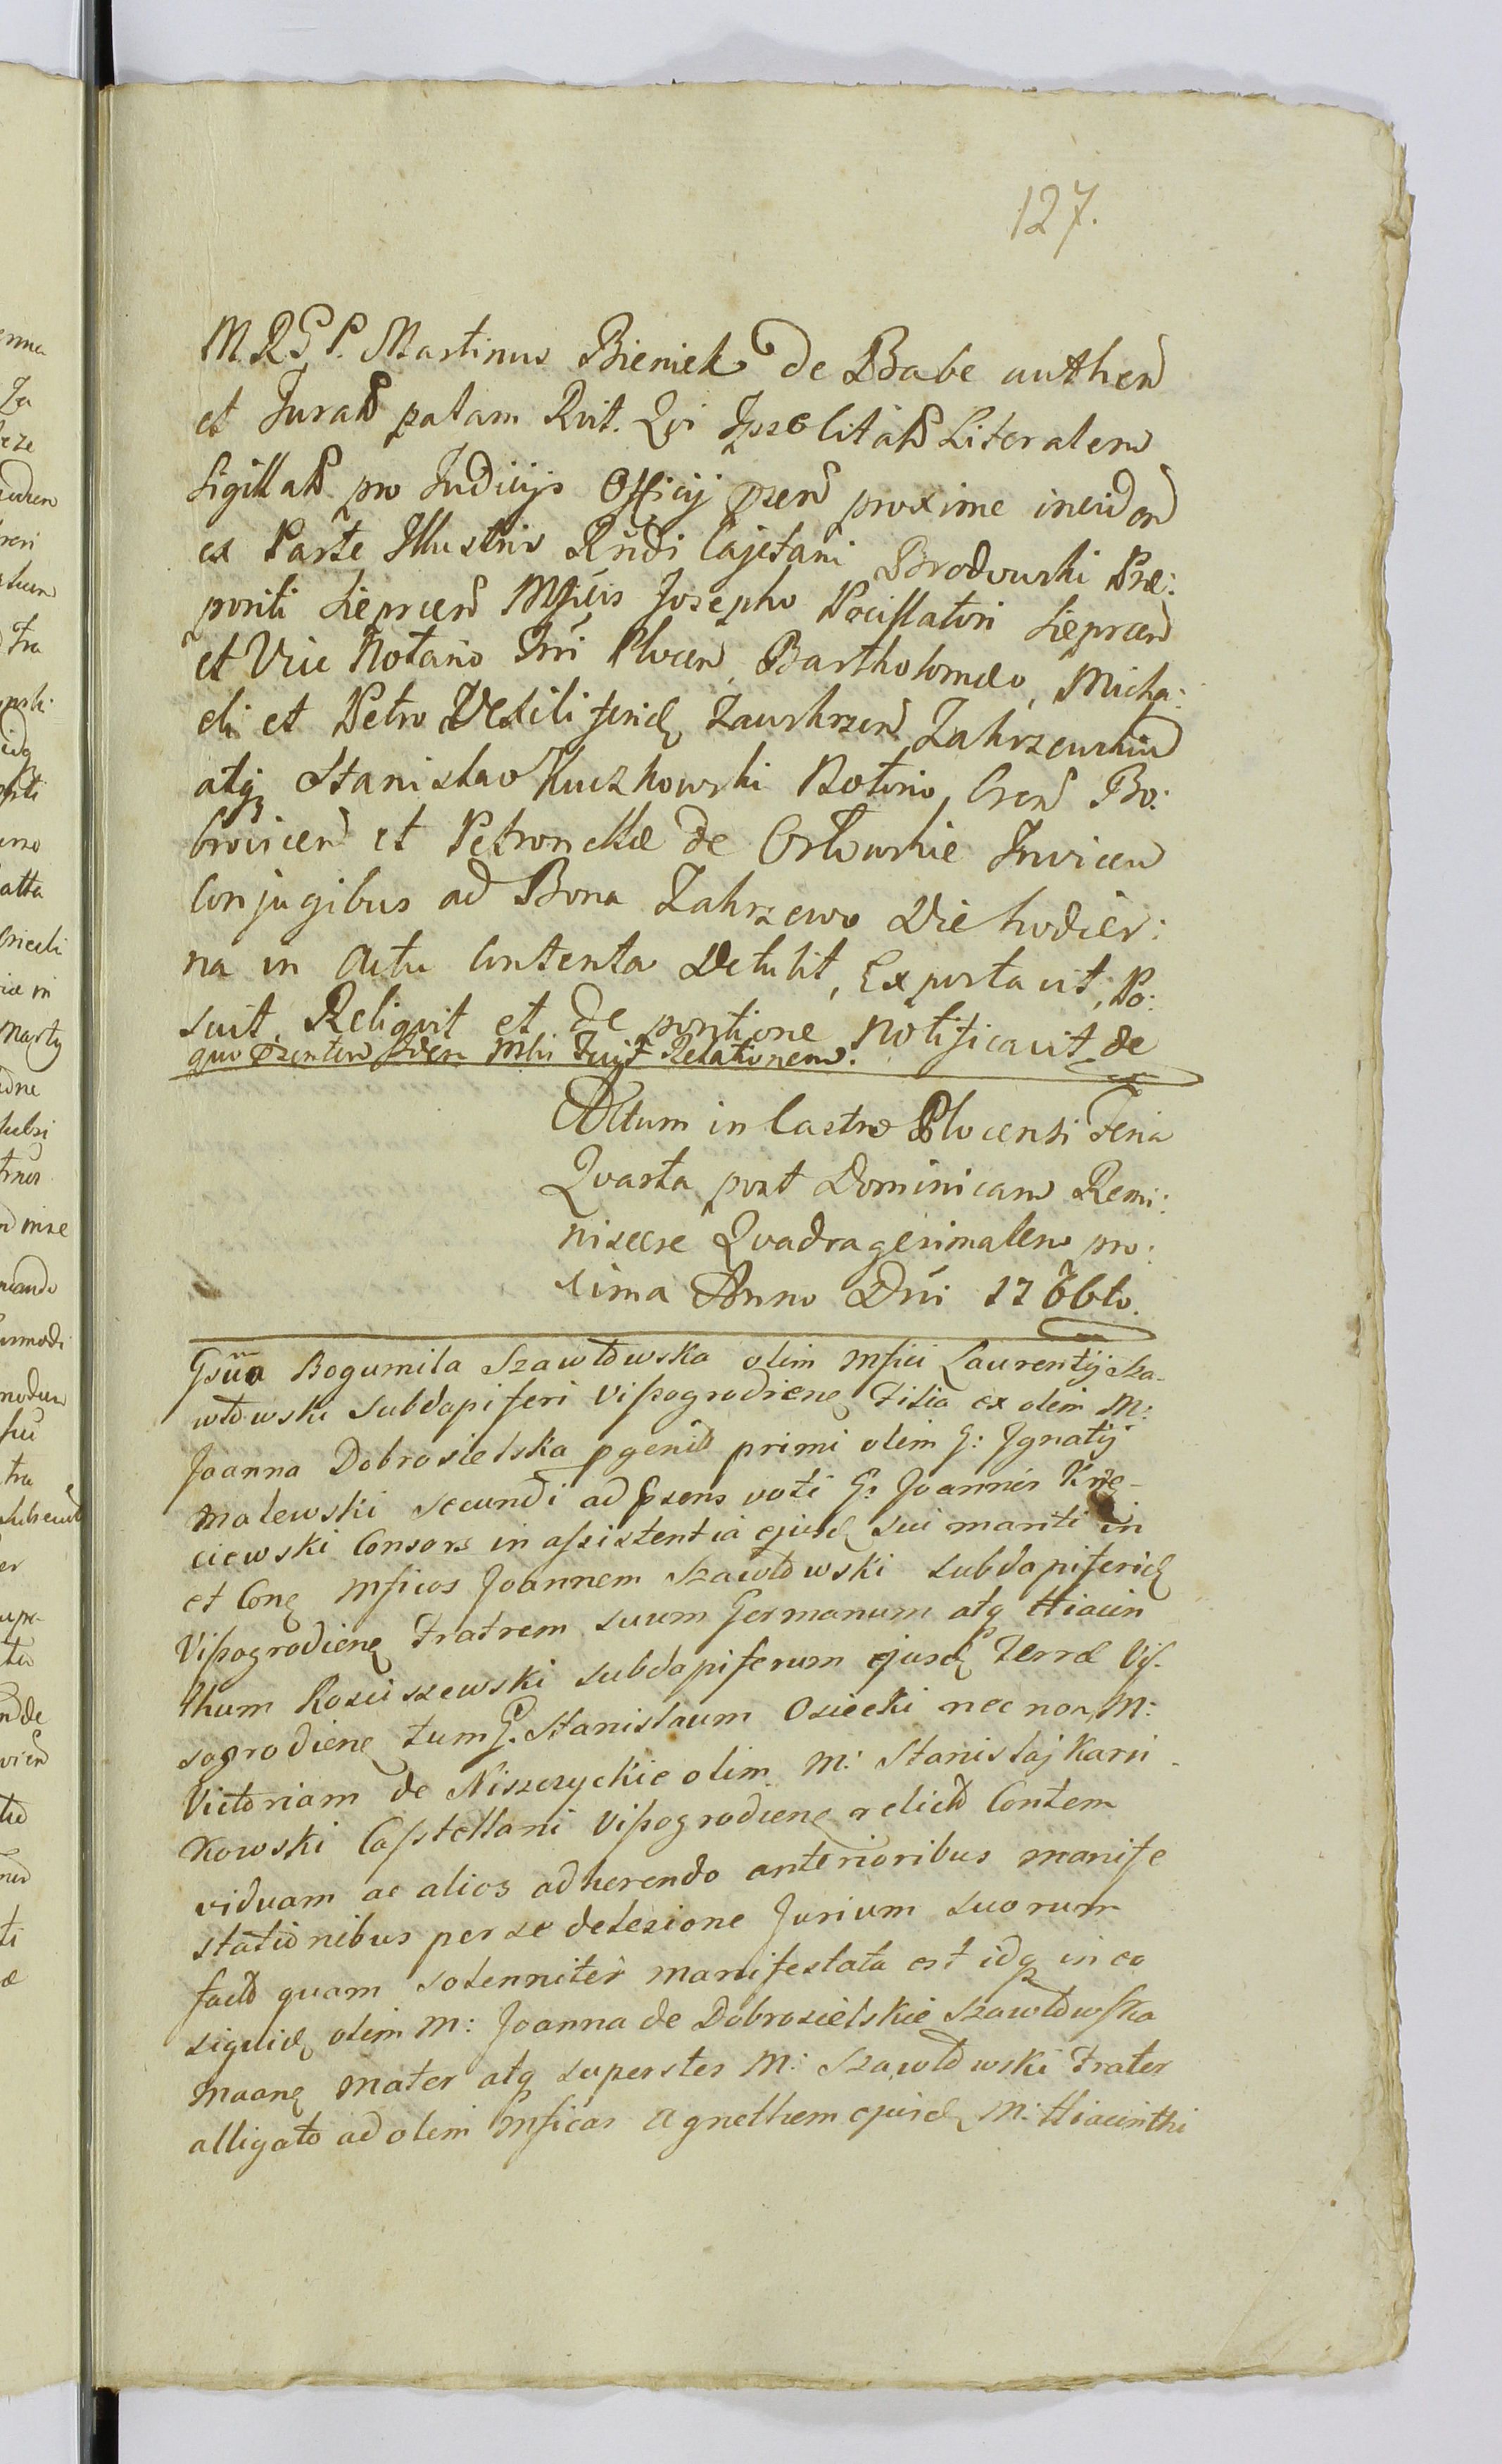 127.
M. R. G. P. Martinus Bieniek de Babe authen
et Jurat palam Rvit. Qvi Ipse Citatt Literalem
Sigillatt pro Judicijs Officij pzen proxime inciden
ex Parte Illustris Rndi Cajetani Brodowski Præ:
positi Sieprcen Mfcis Josepho Pocillatori Sieprcen
et Vice Notario Trri Plocen, Bartholomæo, Micha:
eli et Petro Vexiliferid Zawskrzen Zakrzewskim
atq Stanislao Kuczkowski Notrio, Cren Bo:
browicen et Petronellæ de Orlowskie Invicem
Conjugibus ad Bona Zakrzewo Die hodier:
na in Actu Contenta Detulit, Exportavit, Po:
suit, Reliqvit et de positione notificavit de
quo pzentem idem Mhi Fuijt Relationem.
Actum in Castro Plocensi Feria
Qvarta post Dominicam Remi:
niscere Qvadragesimalem pro:
xima Anno Dni 1766to.
Gsua Bogumila Szawłowska olim Mfici Laurentij Sza-
włowski Subdapiferi Vissogrodiene Filia ex olim M:
Joanna Dobrosielska pgenitt primi olim G: Ignatij
Malewski secundi ad pzens voti G: Joannis Knie-
ciewski Consors in assistentia ejusd sui mariti in
et Cone Mficos Joannem Szawłowski subdapiferid
Vissogrodiene Fratrem suum Germanum atq Hiacin
thum Rosciszewski subdapiferum ejusd Terræ Vis-
sogrodiene tum G. Stanislaum Osiecki nec non M:
Victoriam de Niszczyckie olim M: Stanislaj Karni-
kowski Castellani Vissogrodiene relictt Contem
viduam ac alios adherendo anterioribus manife
stationibus per se delesione Jurium suorum
factt quam solenniter manifestata est idq in eo
siquid olim M: Joanna de Dobrosielskie Szawłowska
maane mater atq superstes M: Szawłowski Frater
alligato ad olim Mficas Agnethem ejusd M: Hiacinthi